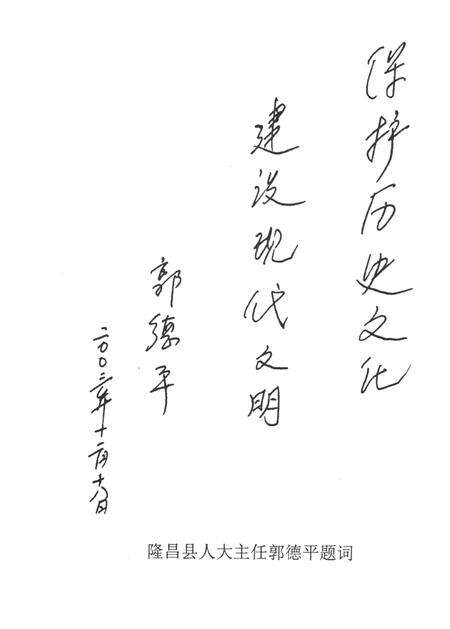 保护历史文化
建设现代文明
郭德平
二〇〇三年十一月十八日
隆昌县人大主任郭德平题词